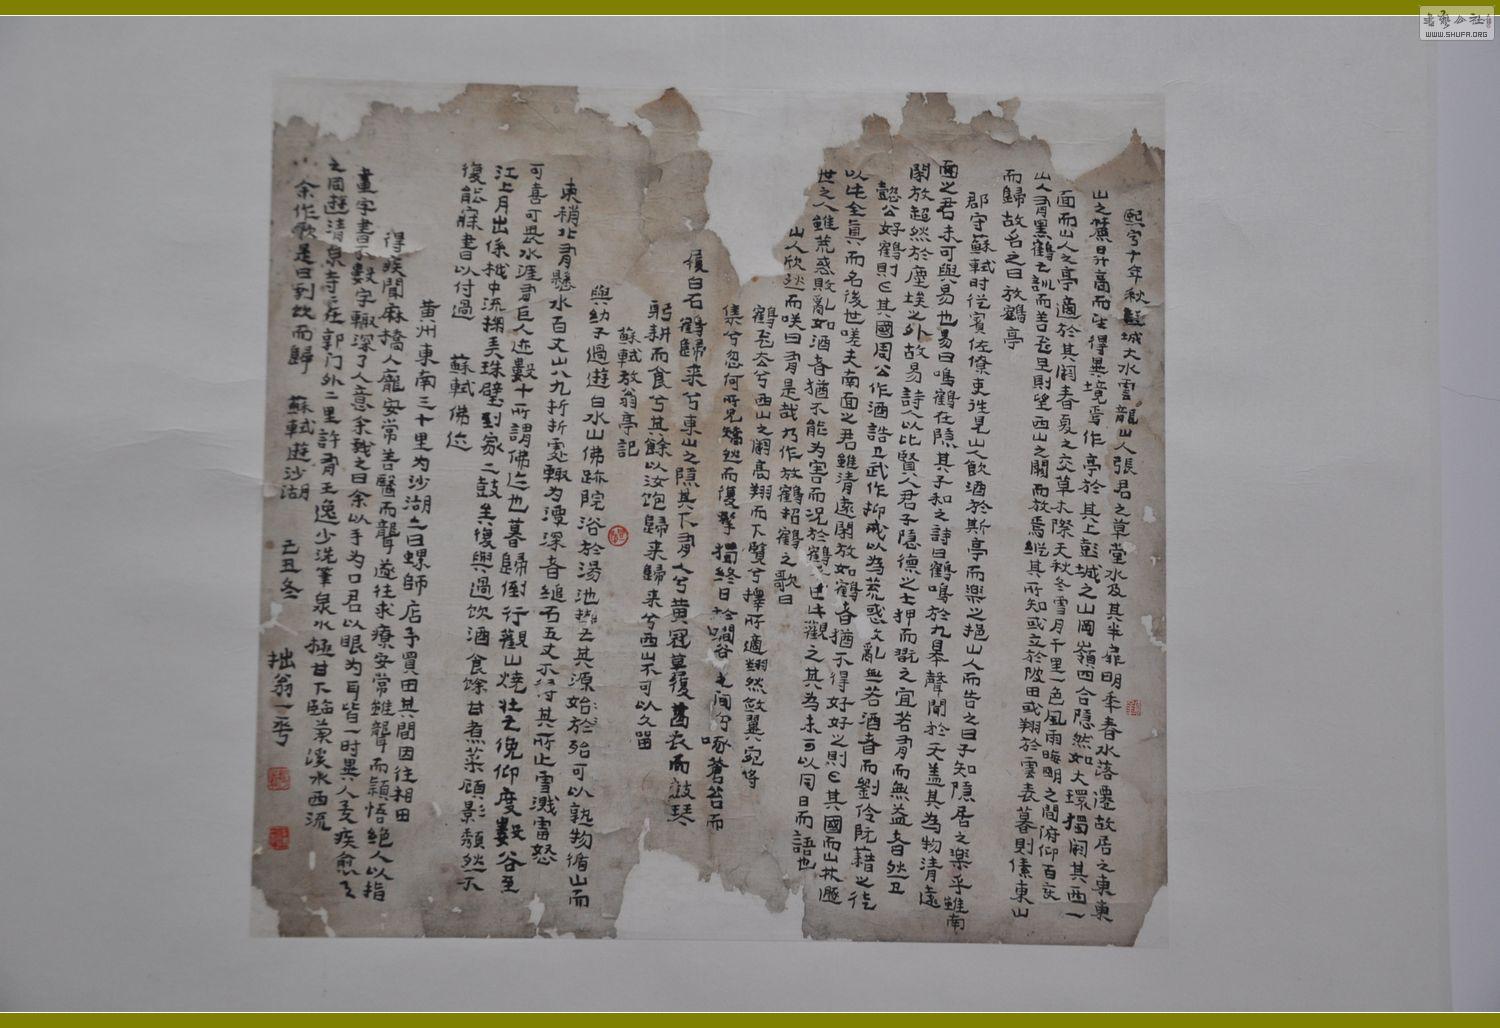 熙宁十年秋彭城大水雲龍山人張君之草堂水及其半扉明年春水落遷故居之東東
山之麓昇高而望得異境焉作亭於其上彭城之山岡嶺四合隱然如大環獨闕其西一
面而山人之亭適於其闕春夏之交草木際天秋冬雪月千里一色風雨晦明之間俯仰百变
山人有黑鶴二訓而善飛旦則望西山之闕而放焉縱其所知或立於陂田或翔於雲表暮則傃東山
而歸故名之曰放鶴亭
郡守蘇軾时從賓佐僚吏往見山人飲酒於斯亭而樂之挹山人而告之曰子知隱居之樂乎雖南
面之君未可與易也易曰鳴鶴在隐其子和之詩曰鶴鳴於九皋聲聞於天盖其為物清遠
閑放超然於塵埃之外故易詩人以比賢人君子隱德之士狎而翫之宜若有而無益者然卫
懿公好鶴則亡其國周公作酒誥卫武作抑戒以為荒惑敗亂無若酒者而劉伶阮藉之徒
以此全真而名後世嗟夫南面之君雖清遠閑放如鶴者猶不得好好之則亡其國而山林遯
世之人雖荒惑敗乱如酒者猶不能为害而况於鶴乎由此觀之其為未可以同日而語也
山人欣然而咲曰有是哉乃作放鶴招鶴之歌曰
鶴飛去兮西山之闕高翔而下覽兮擇所適翔然斂翼宛將
集兮忽何所見矯然而復擊獨終日於澗谷之间兮啄蒼苔而
履白石鶴歸来兮東山之隱其下有人兮黄冠草履葛衣而鼓琴
躬耕而食兮其餘以汝饱歸来歸来兮西山不可以久留
蘇軾放翁亭記
與幼子過遊白水山佛跡院浴於湯池熱甚其源始於殆可以熟物循山而
東稍北有懸水百丈山八九折折處輒为潭深者縋石五丈不得其所止雪濺雷怒
可喜可畏水涯有巨人迹數十所謂佛迹也暮歸倒行觀山燒壮甚俛仰度數谷至
江上月出係栰中流掬美珠璧到家二鼓矣復與過饮酒食餘甘煮菜顧影頹然不
復能寐書以付過 蘇軾佛迹
黄州東南三十里为沙湖亦曰螺師店予買田其間因往相田
得疾聞麻橋人龐安常善醫而聾遂往求療安常雖聾而穎悟绝人以指
畫字書不數字輒深了人意余戲之曰余以手为口君以眼为耳皆一时異人也疾愈与
之同遊清泉寺寺在郭门外二里許有王逸少洗筆泉水极甘下臨蘭溪水西流
余作歌是日剧饮而歸 蘇軾遊沙湖 己丑冬 拙翁一平
書艺公社
WWW.SHUFA.ORG